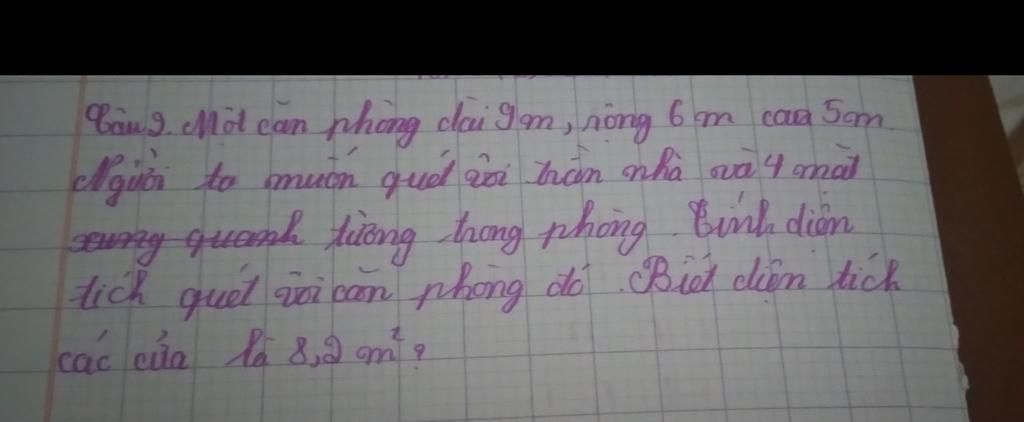 Câu 2. Một căn phòng dài 9m, rộng 6m cao 5m.
Người ta muốn quét vôi trần nhà và 4 mặt
xung quanh tường trong phòng. Tính diện
tích quét vôi căn phòng đó. Biết diện tích
các cửa là 8,2 m²?